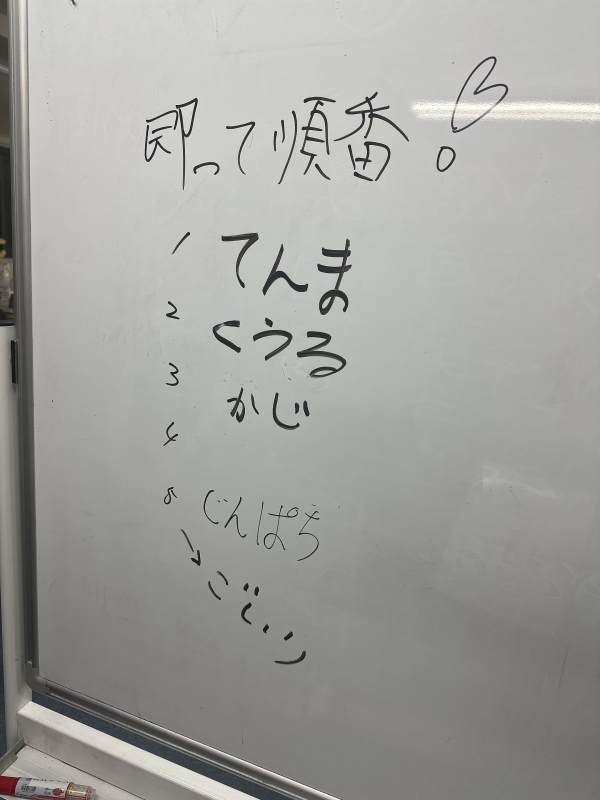 即って順番!
1 てんま
2 くうる
3 かじ
4
5 じんぱち